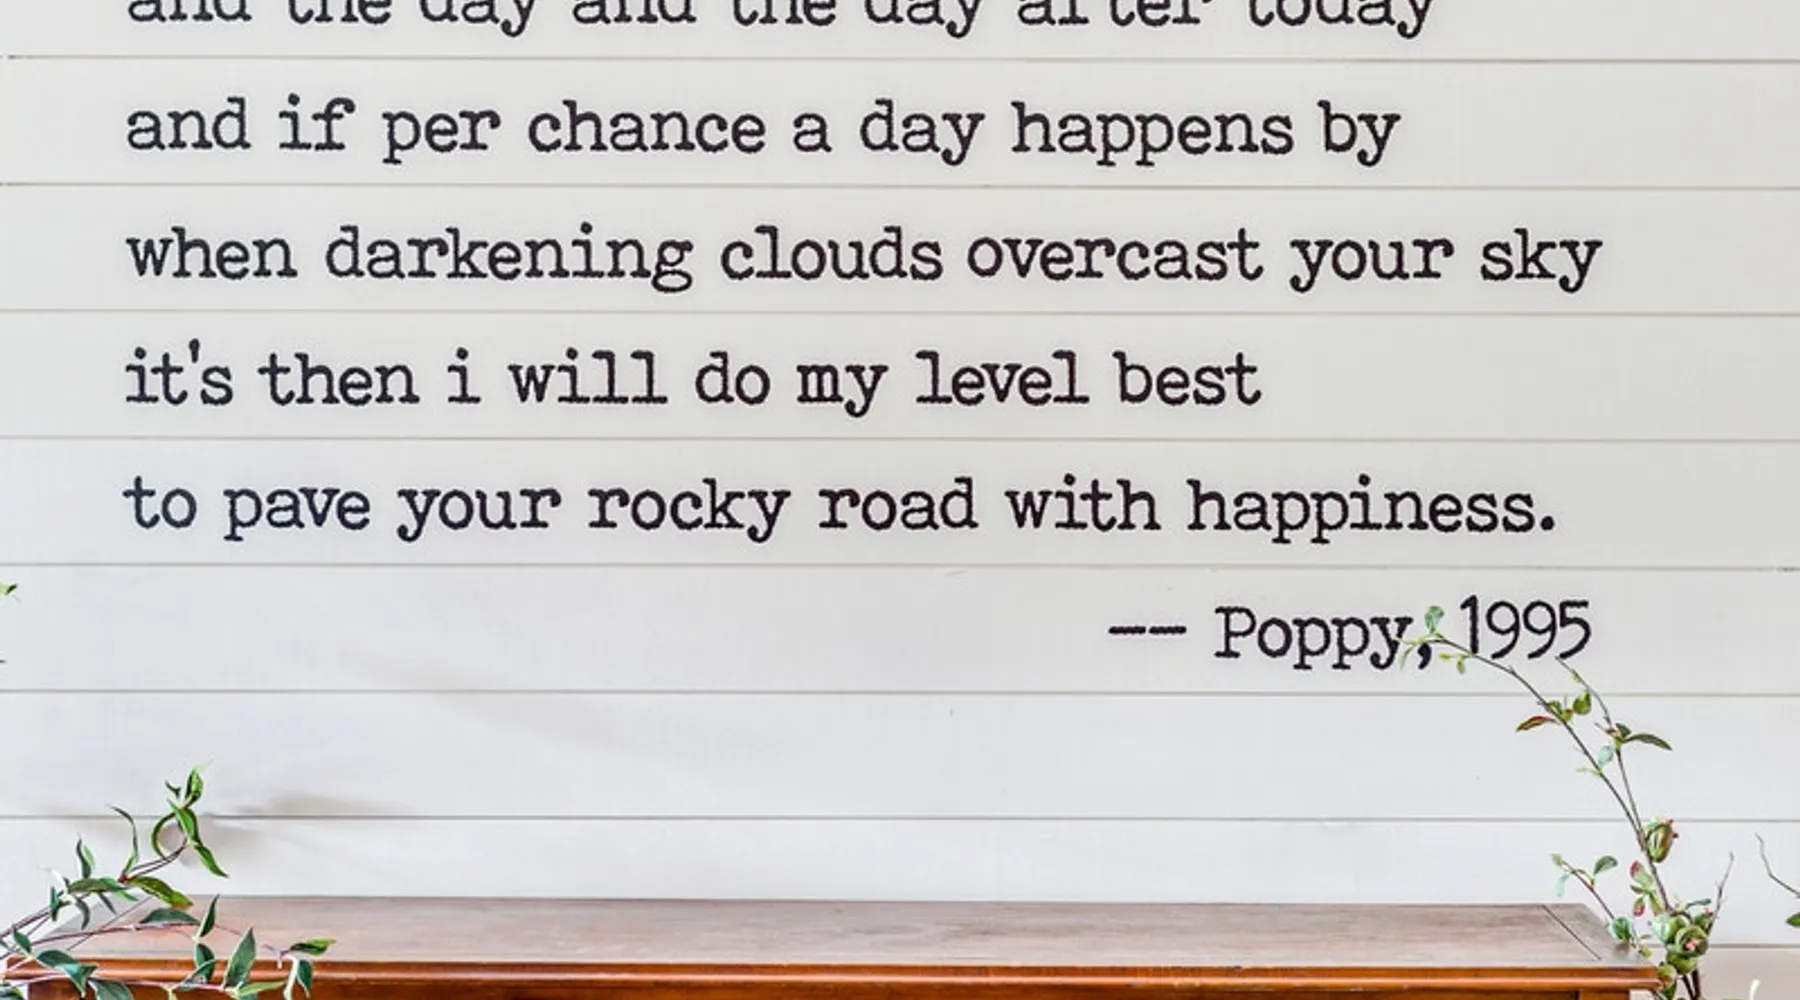 and the day and the day after today
and if per chance a day happens by
when darkening clouds overcast your sky
it's then i will do my level best
to pave your rocky road with happiness.
-- Poppy, 1995